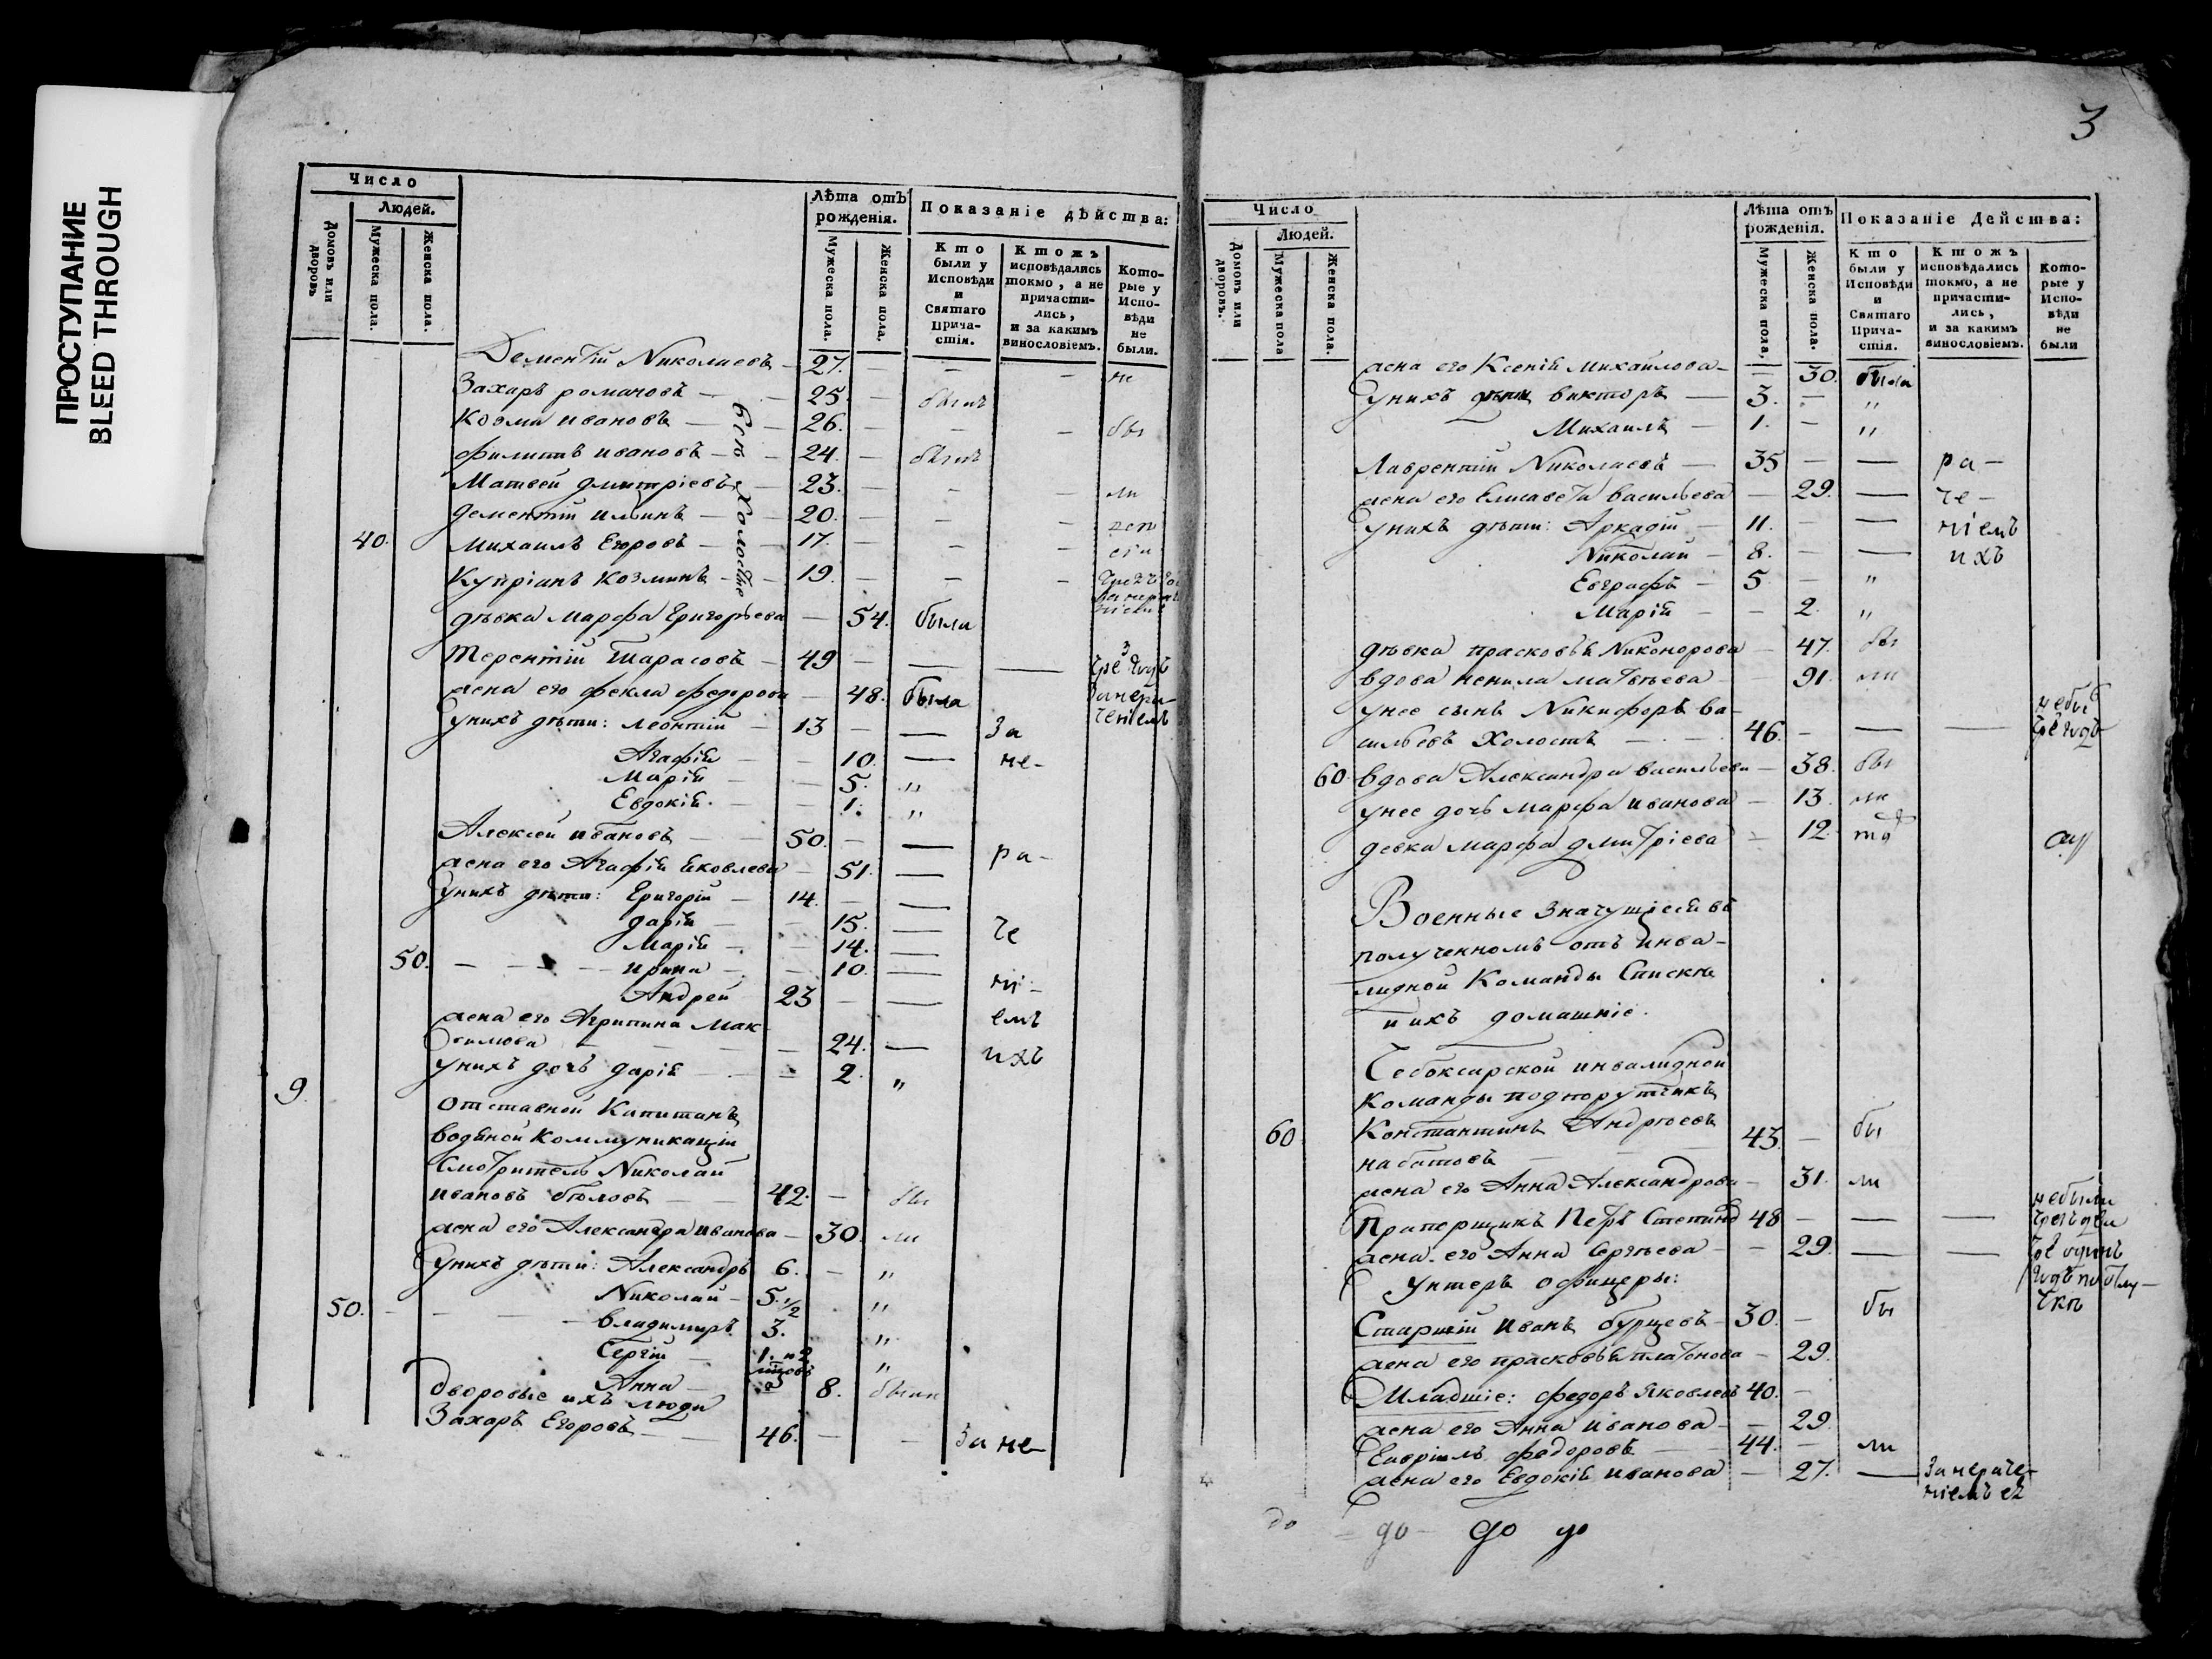 ПРОСТУПАНИЕ
BLEED THROUGH
Число
Людей.
Домовъ или дворовъ
Мужеска пола.
Женска пола.
Лѣта отъ рожденія.
Мужеска пола.
Женска пола.
Показаніе дѣйства:
Кто были у Исповѣди и Святаго Причастія.
Ктожъ исповѣдались токмо, а не причастились, и за какимъ винословіемъ.
Которые у Исповѣди не были.
Дементій Николаевъ — 27. — — — не
Захаръ романовъ — 25. — былъ
Козма ивановъ — 26. — — — бы
филиппъ ивановъ — 24. — былъ
Матвей дмитріевъ — 23. — — — ли
дементій ильинъ — 20. — — —
40. Михаилъ Егоровъ — 17. — — —
Купріанъ козминъ — 19. — — —
всѣ холостые
дѣвка марфа Григорьева — 54. была
терентій тарасовъ — 49 — — — 3
жена его фекла федорова — 48. была
унихъ дѣти: леонтій — 13 — — За
Агафія — 10. — не-
Марія — 5. „
Евдокія. — 1. „
Алексей ивановъ — 50. — — ра-
жена его Агафія Яковлева — 51. —
унихъ дѣти: Григорій — 14. — —
дарія — 15. — че
Марія — 14. —
50. — — — ирина — 10. —
Андрей 23 — — ні-
жена его Агрипина Мак-
симова — 24. — емъ
ихъ
унихъ дочь дарія — 2. „
9.
отставной Капитанъ
водяной Коммуникаціи
Смотритель Николай
ивановъ бѣловъ — 42. — бы
жена его Александра иванова — 30. ли
унихъ дѣти: Александръ 6. — „
Николай — 5.1/2 „
50. — — — владимиръ 3. „
Сергій — 1. „
Анна — 8. была
дворовые ихъ люди
Захаръ Егоровъ — 46. — — За не-
3
Число
Людей.
Домовъ или дворовъ.
Мужеска пола
Женска пола.
Лѣта отъ рожденія.
Мужеска пола,
Женска пола.
Показаніе Дейсшва:
Кто были у Исповѣди и Святаго Причастія.
Ктожъ исповѣдались токмо, а не причастились, и за какимъ винословіемъ.
Которые у Исповѣди не были
жена его Ксенія михайлова — — 30. были
унихъ дѣти викторъ — 3. — „
Михаилъ — 1. — „
Лаврентій Николаевъ — 35 — — ра-
жена его Елисавета васильева — 29. — че-
унихъ дѣти: Аркадій — 11. — — ніемъ
Николай — 8. — — ихъ
Евграфъ — 5. — „
Марія — — 2. „
дѣвка прасковья Никонорова — 47. бы
вдова ненила матвѣева — 91. ли
унее сынъ Никифоръ ва-
сильевъ Холостъ — 46. — — —
60. вдова Александра васильева — 38. бы
унее дочь марфа иванова — 13. ли
девка марфа дмитріева — 12.
Военные значущіеся въ
полученномъ отъ инва-
лидной Команды Спискѣ
и ихъ домашніе.
Чебоксарской инвалидной
Команды подпорутчикъ
60. Константинъ Андреевъ
набатовъ — 43. — бы
жена его Анна Александрова — 31. ли
Прапорщикъ Петръ Степановъ 48 — — — небыли
жена его Анна Сергѣева — — 29. — —
Унтеръ офицеры:
Старшій Иванъ бурцевъ — 30. — бы
жена его прасковья платонова — 29.
Младшіе: федоръ Яковлевъ 40. —
жена его Анна иванова — — 29.
Гавріилъ федоровъ — 44. — ли
жена его Евдокія иванова — 27. — За нераче-
ніемъ её
до — до — до до